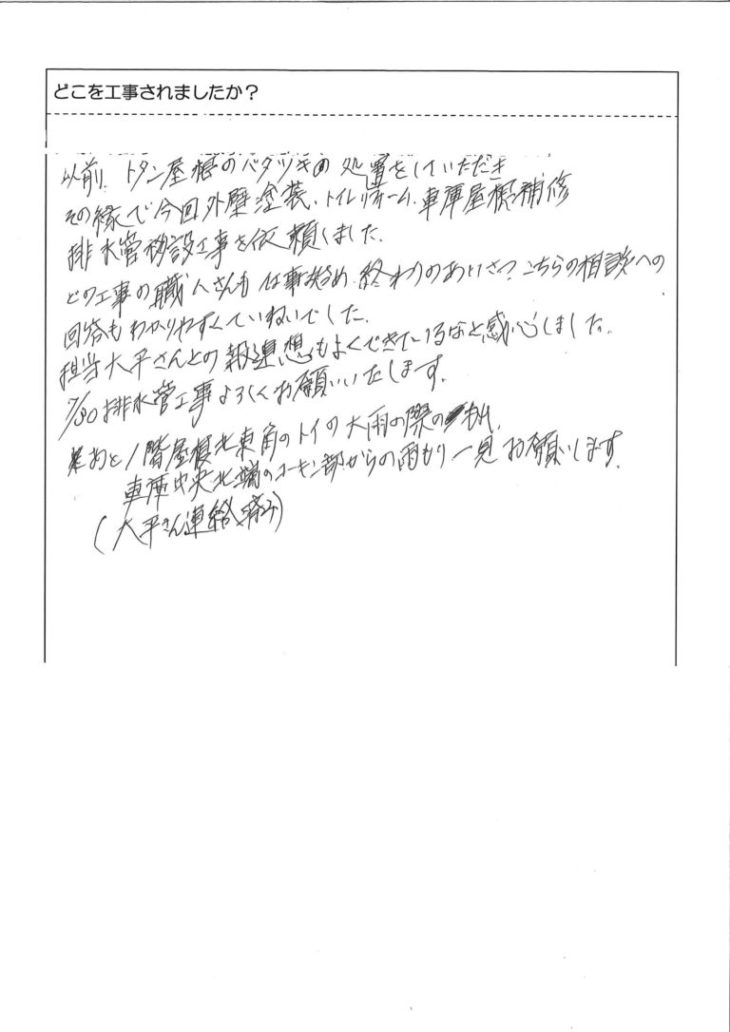 どこを工事されましたか？
以前、トタン屋根のバタツキの処置をしていただき
その縁で今回外壁塗装、トイレリホーム、車庫屋根補修
排水管移設工事を依頼しました。
どの工事の職人さんも仕事始め、終わりのあいさつ、こちらの相談への
回答もわかりやすくていねいでした。
担当大平さんとの報連想もよくできているなと感心しました。
7/30排水管工事よろしくお願いいたします。
あと1階屋根北東角のトイの大雨の際の
車庫中央北端のコーキン部からの雨もり一見お願いします。
(大平さん連絡済み)